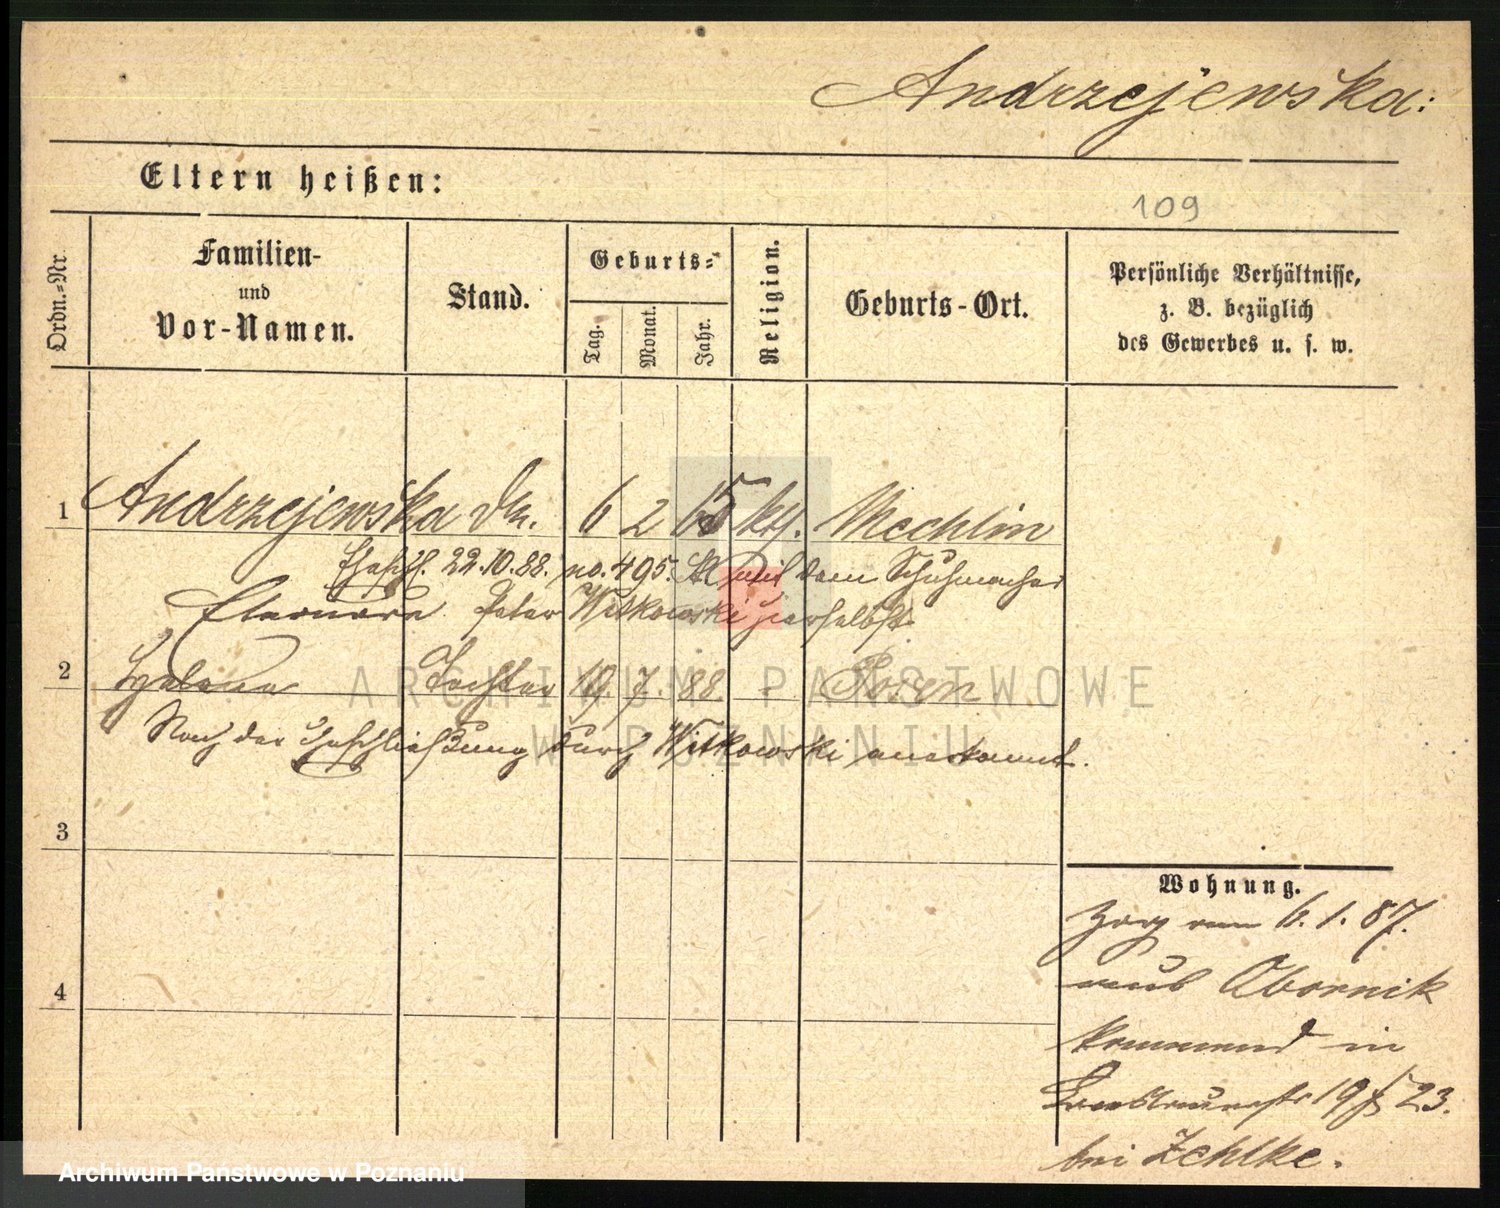 Andrzejewska:
Eltern heißen:
109
Ordn.=Nr.
Familien-
und
Vor-Namen.
Stand.
Geburts=
Tag.
Monat.
Jahr.
Religion.
Geburts-Ort.
Persönliche Verhältnisse,
z. B. bezüglich
des Gewerbes u. s. w.
1 Andrzejewska 6 2 65 kth. Mechlin
22.10.88. no. 495. mit dem Schuhmacher
Eleonora Peter Witkowski hierselbst
2 Helena Tochter 19. 7. 88. - Posen
Nach der Eheschließung durch Witkowski anerkannt.
3
4
Wohnung.
Zog vom 6.1.87.
aus Obornik
kommend in
19 23.
bei Zehlke.
ARCHIWUM PAŃSTWOWE
W POZNANIU
Archiwum Państwowe w Poznaniu